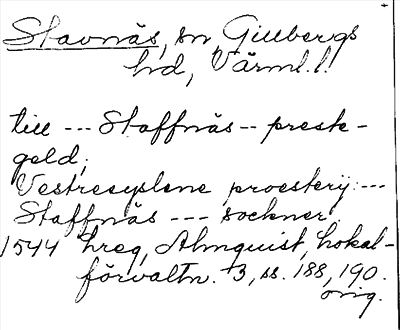 Stavnäs, sn, Gillbergs
hd, Värml. l.
till --- Staffnäs -- preste-
geld;
Vestresyslene proesterij ---
Staffnäs --- sockner.
1544 hreg, Almquist, Lokal-
förvaltn. 3, ss. 188, 190.
orig.